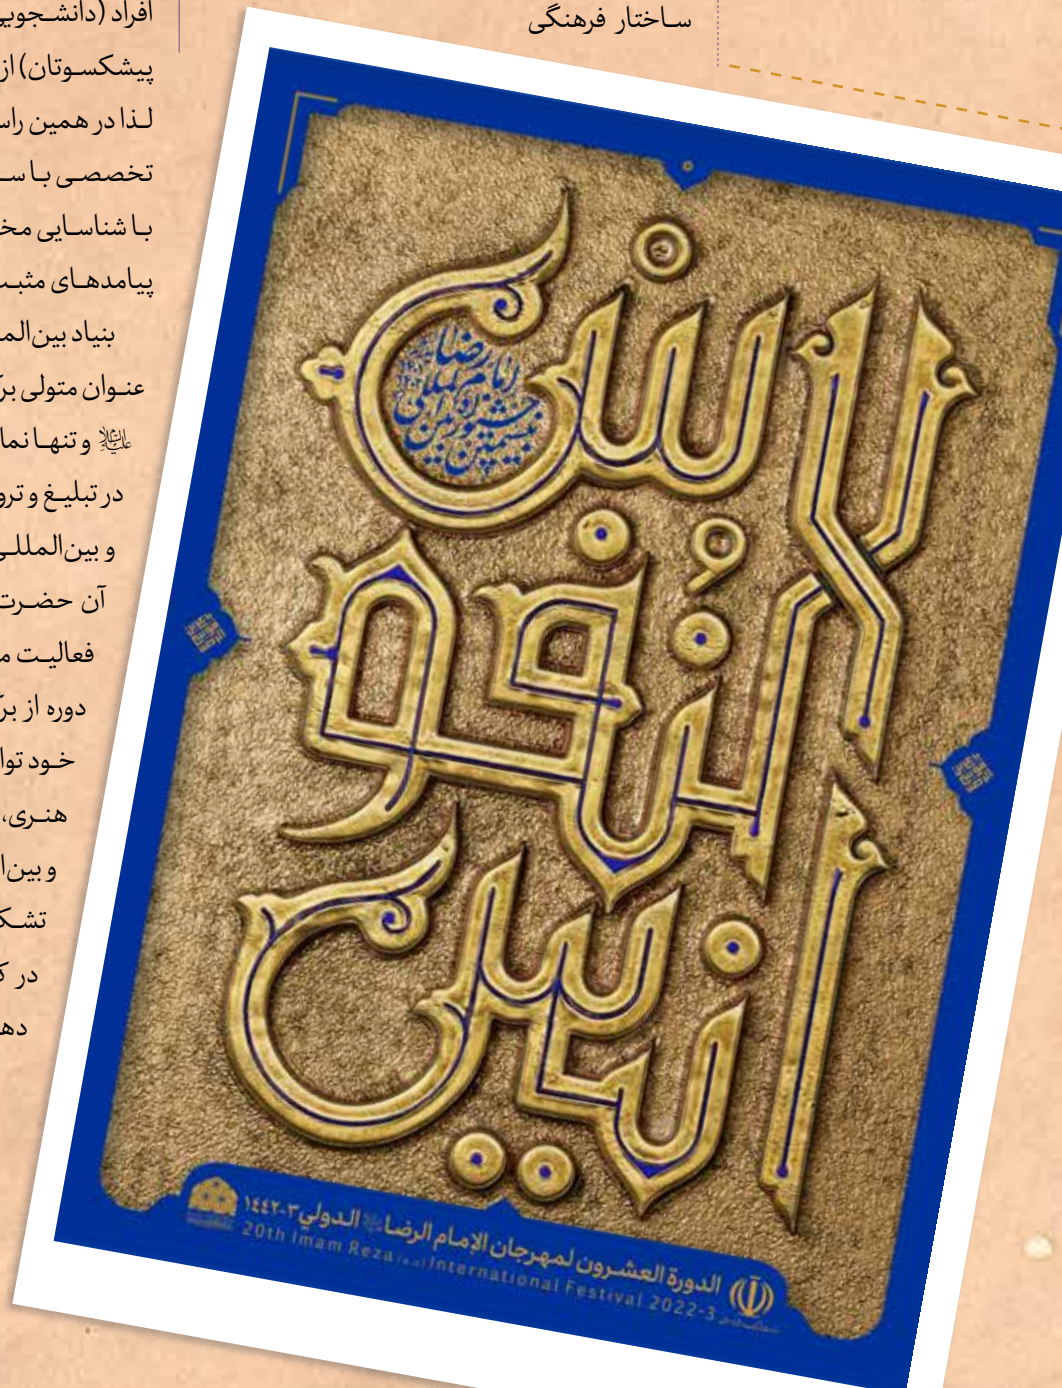 ساختار فرهنگی
افراد (دانشجویی
پیشکسوتان) از
لذا در همین راس
تخصصی با س
با شناسایی مخ
پیامدهای مثبت
بنیاد بین‌الم
عنوان متولی بر
علیه‌السلام و تنها نما
در تبلیغ و ترو
و بین‌المللی
آن حضرت
فعالیت م
دوره از بر
خود توا
هنری،
و بین‌ا
تشک
در ک
دهـ
انیس النفوس
بیستمین جشنواره بین المللی امام رضا
الدورة العشرون لمهرجان الإمام الرضا الدولي ٣-١٤٤٢
20th Imam Reza International Festival 2022-3